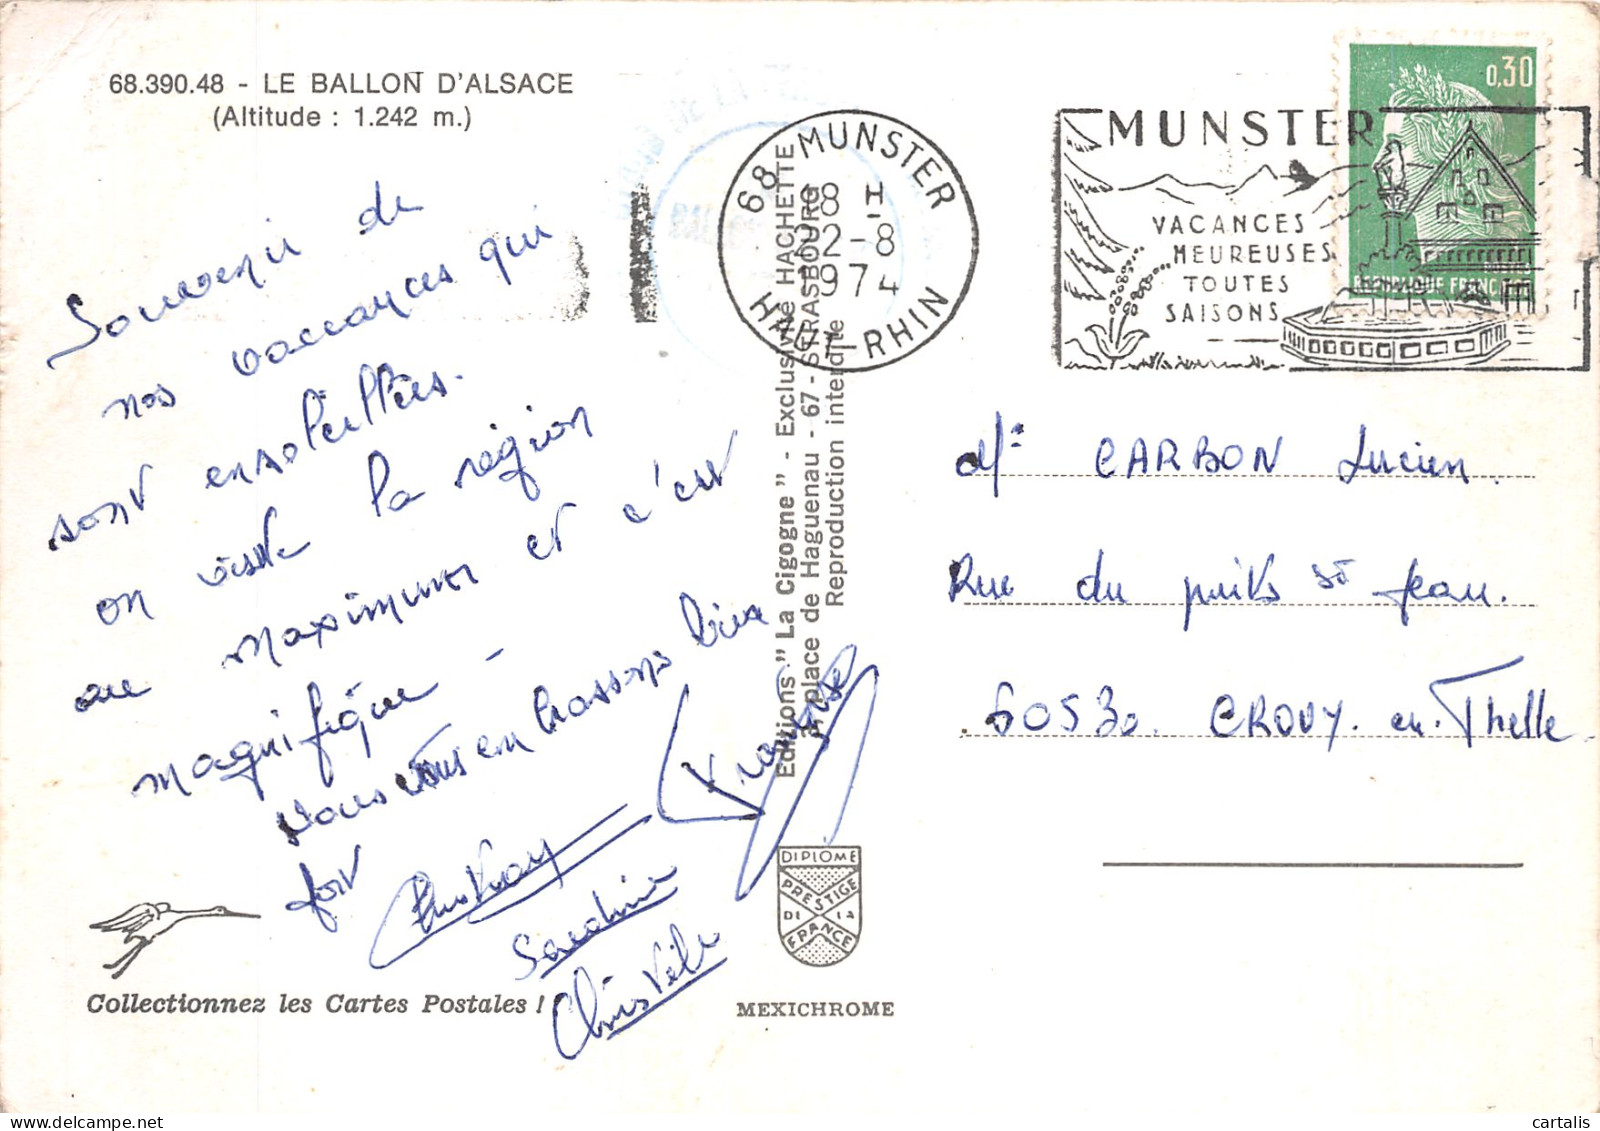 68.390.48 - LE BALLON D'ALSACE
(Altitude : 1.242 m.)
Souvenir de
nos vacances qui
sont ensoleillées.
on visite la région
au maximum et c'est
magnifique -
Nous vous embrassons bien
fort
Françoise
Sandrine
Christèle
Collectionnez les Cartes Postales !
Editions "La Cigogne" - Exclusivité HACHETTE
place de Haguenau - 67 - STRASBOURG
Reproduction interdite
DIPLOME
PRESTIGE
DE LA
FRANCE
MEXICHROME
68 MUNSTER
18 H
22-8
1974
HAUT-RHIN
MUNSTER
VACANCES
HEUREUSES
TOUTES
SAISONS
0,30
REPUBLIQUE FRANCAISE
Mr CARBON Lucien
Rue du puits St Jean.
60530. CROUY. en. Thelle
cartalis